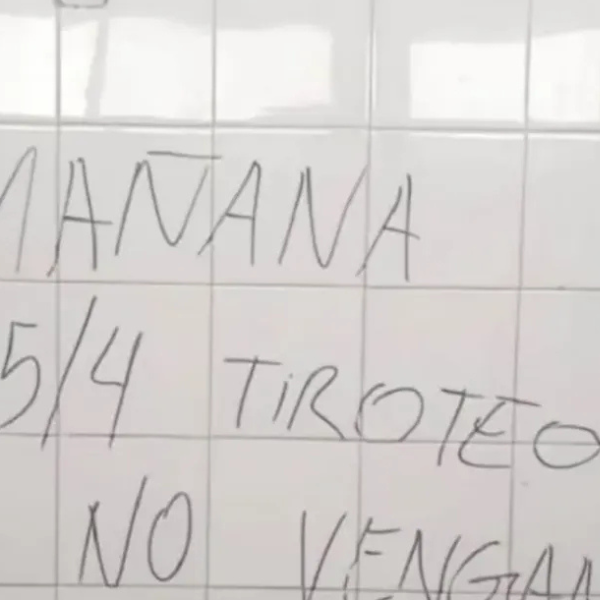 MAÑANA
5/4 TIROTEO
NO VENGAN